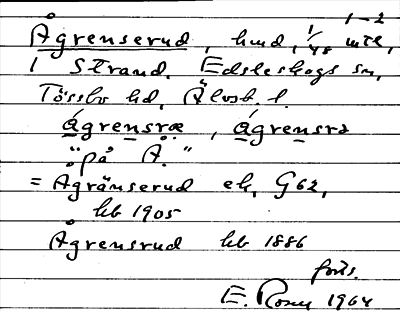 1-2
Ågrenserud, hmd, 1/48 mtl,
i Strand. Edsleskogs sn,
Tössbo hd, Älvsb. l.
ágrensræ, ágrensrə
"på Å."
= Agränserud ek, G62,
hb 1905
Ågrensrud hb 1886
forts.
E. Rosén 1964